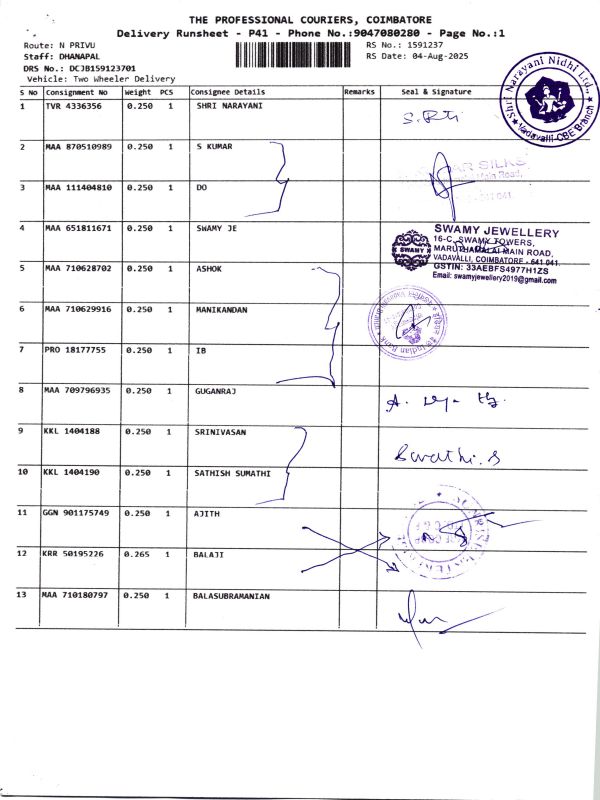 THE PROFESSIONAL COURIERS, COIMBATORE
Delivery Runsheet - P41 - Phone No.:9047080280 - Page No.:1
Route: N PRIVU
RS No.: 1591237
Staff: DHANAPAL
RS Date: 04-Aug-2025
DRS No.: DCJB159123701
Vehicle: Two Wheeler Delivery
S No Consignment No Weight PCS Consignee Details Remarks Seal & Signature
1 TVR 4336356 0.250 1 SHRI NARAYANI
Shri Narayani Nidhi Ltd.,
Vadavalli-CBE Branch
2 MAA 870510989 0.250 1 S KUMAR
SILKS
Main Road,
641 041.
3 MAA 111404810 0.250 1 DO
4 MAA 651811671 0.250 1 SWAMY JE
SWAMY
SWAMY JEWELLERY
16-C, SWAMY TOWERS,
MARUTHAMALAI MAIN ROAD,
VADAVALLI, COIMBATORE - 641 041.
GSTIN: 33AEBFS4977H1ZS
Email: swamyjewellery2019@gmail.com
5 MAA 710628702 0.250 1 ASHOK
6 MAA 710629916 0.250 1 MANIKANDAN
Indian Bank
7 PRO 18177755 0.250 1 IB
8 MAA 709796935 0.250 1 GUGANRAJ
9 KKL 1404188 0.250 1 SRINIVASAN
Barathi.S
10 KKL 1404190 0.250 1 SATHISH SUMATHI
11 GGN 901175749 0.250 1 AJITH
12 KRR 50195226 0.265 1 BALAJI
13 MAA 710180797 0.250 1 BALASUBRAMANIAN